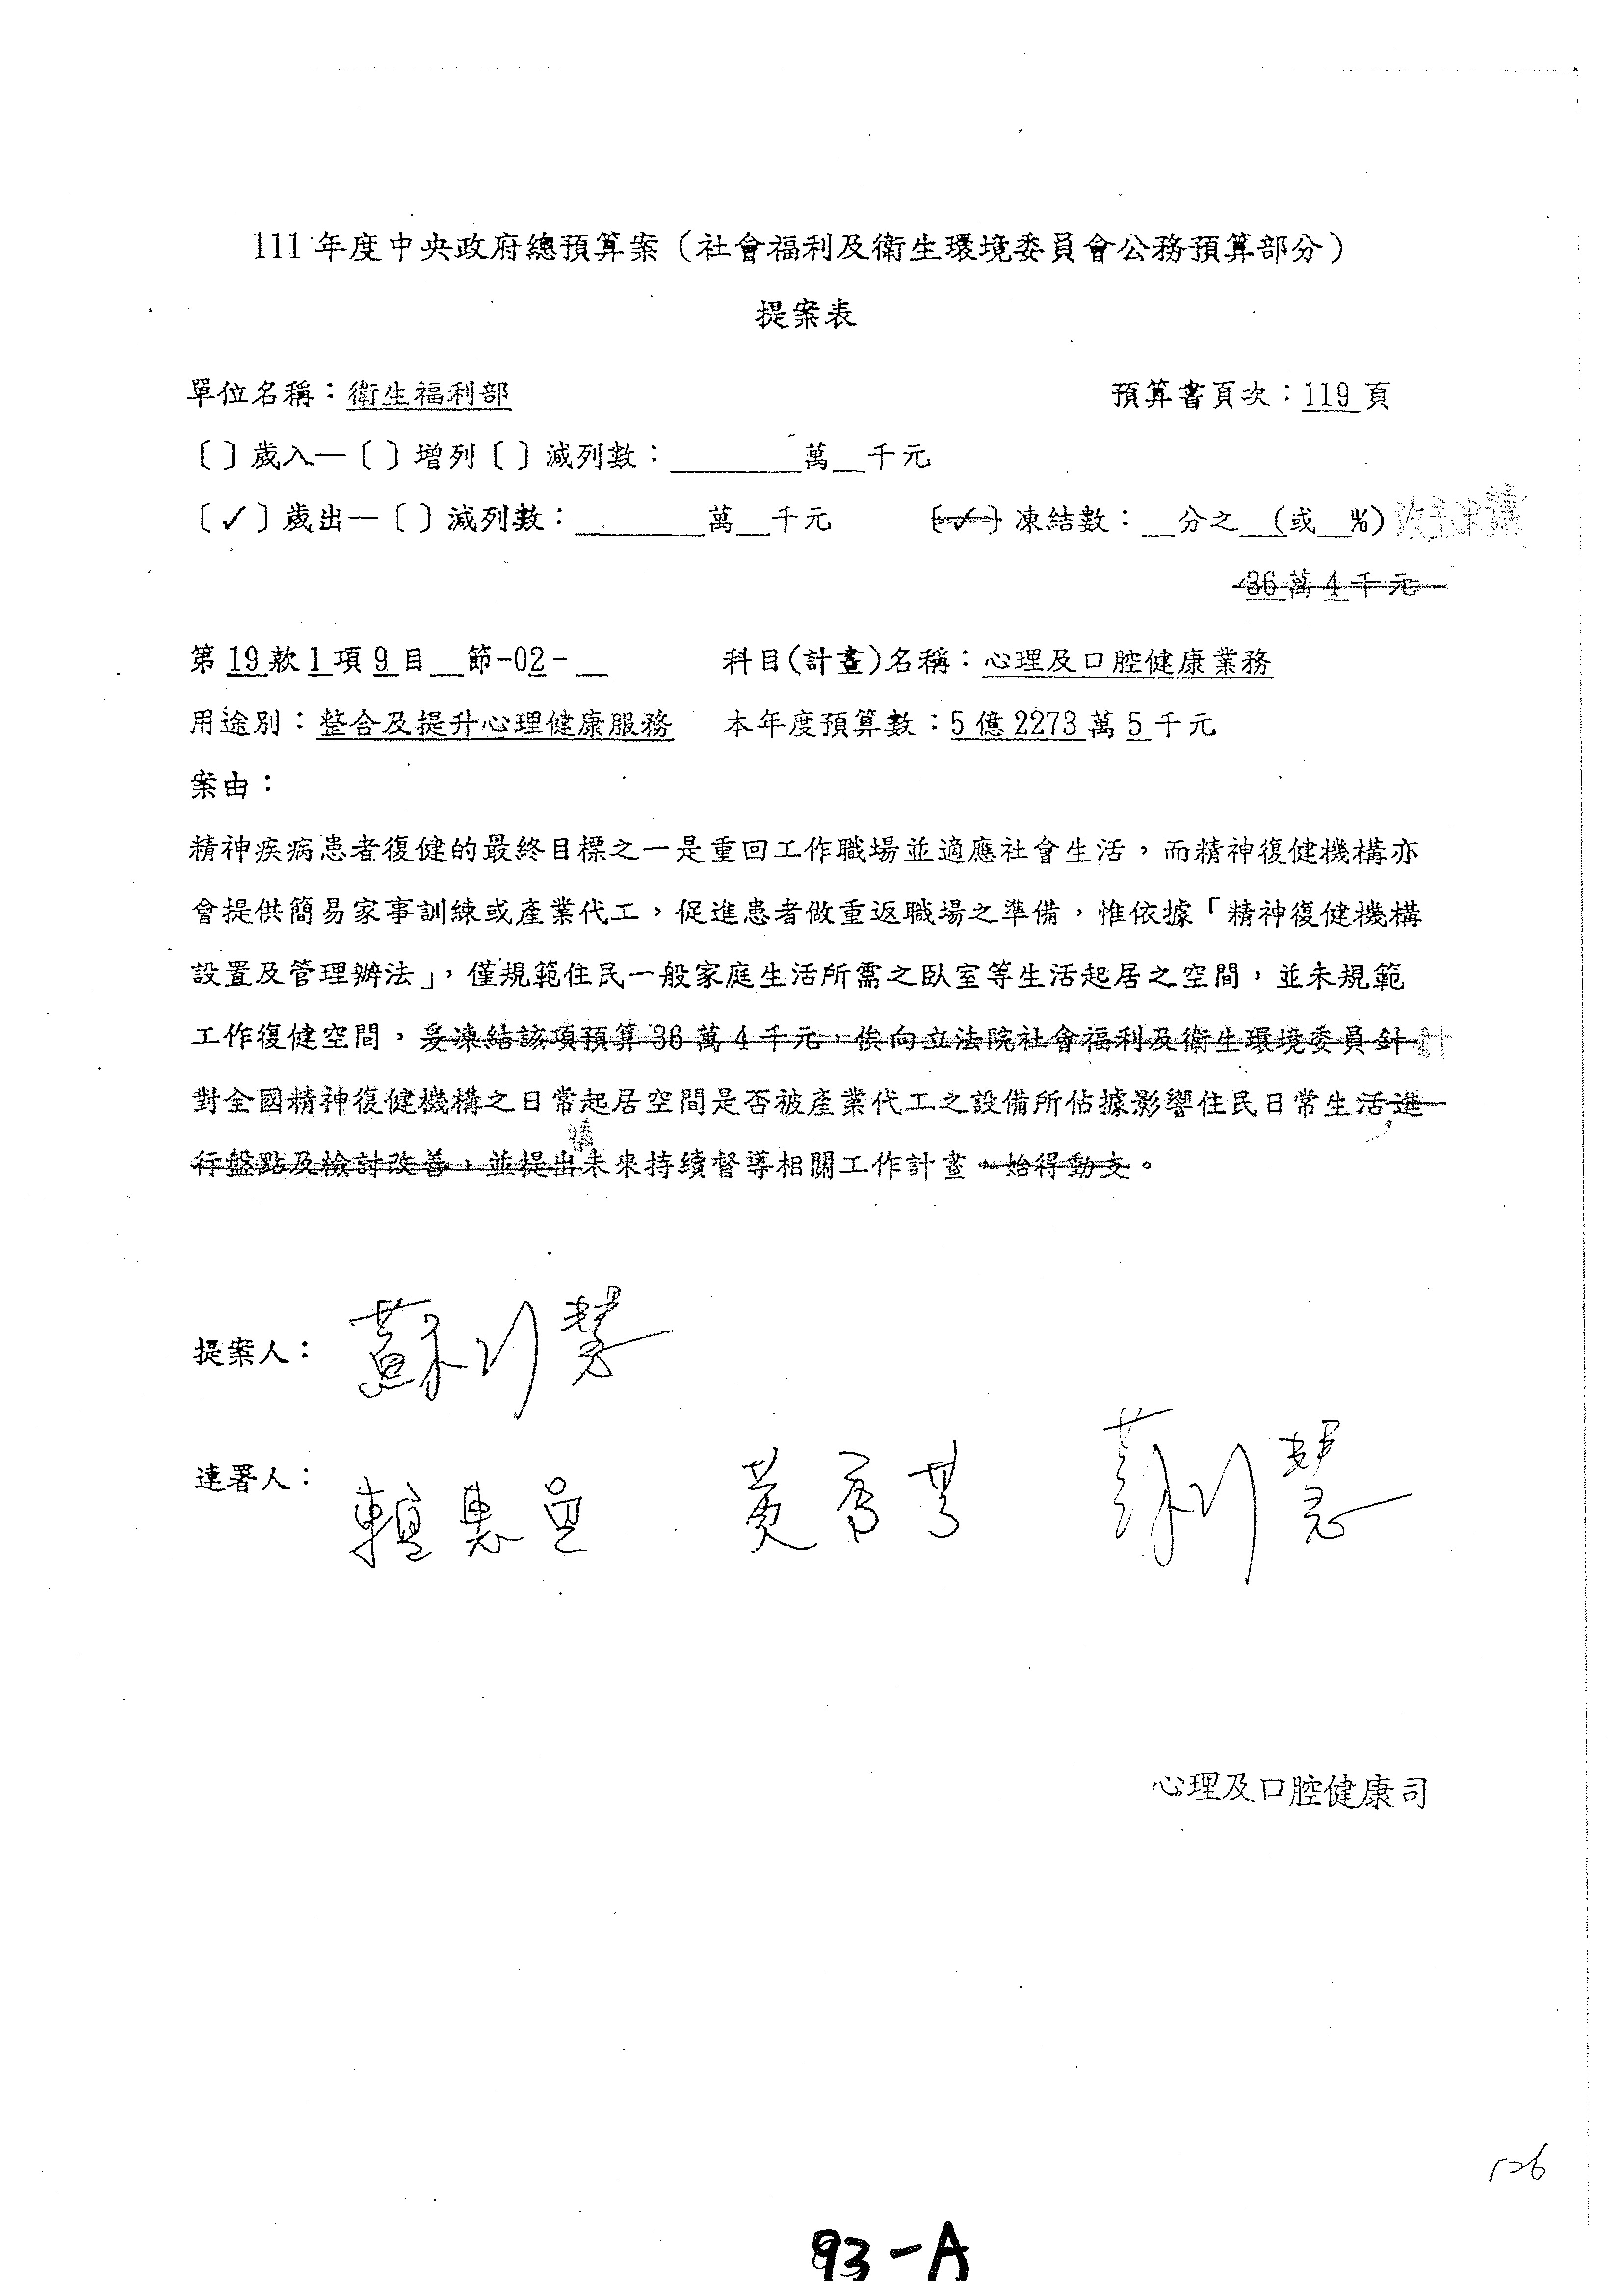 111年度中央政府總預算案（社會福利及衛生環境委員會公務預算部分）
提案表
單位名稱：衛生福利部 預算書頁次：119頁
〔〕歲入—〔〕增列〔〕減列數：________萬__千元
〔✓〕歲出—〔〕減列數：________萬__千元 〔✓〕凍結數：__分之__(或__%)
36萬4千元
第19款1項9目__節-02-__ 科目(計畫)名稱：心理及口腔健康業務
用途別：整合及提升心理健康服務 本年度預算數：5億2273萬5千元
案由：
精神疾病患者復健的最終目標之一是重回工作職場並適應社會生活，而精神復健機構亦
會提供簡易家事訓練或產業代工，促進患者做重返職場之準備，惟依據「精神復健機構
設置及管理辦法」，僅規範住民一般家庭生活所需之臥室等生活起居之空間，並未規範
工作復健空間，爰凍結該項預算36萬4千元，俟向立法院社會福利及衛生環境委員針
對全國精神復健機構之日常起居空間是否被產業代工之設備所佔據影響住民日常生活進
行盤點及檢討改善，並提出未來持續督導相關工作計畫，始得動支。
提案人：
連署人：
賴惠員 黃秀芳
心理及口腔健康司
126
93-A